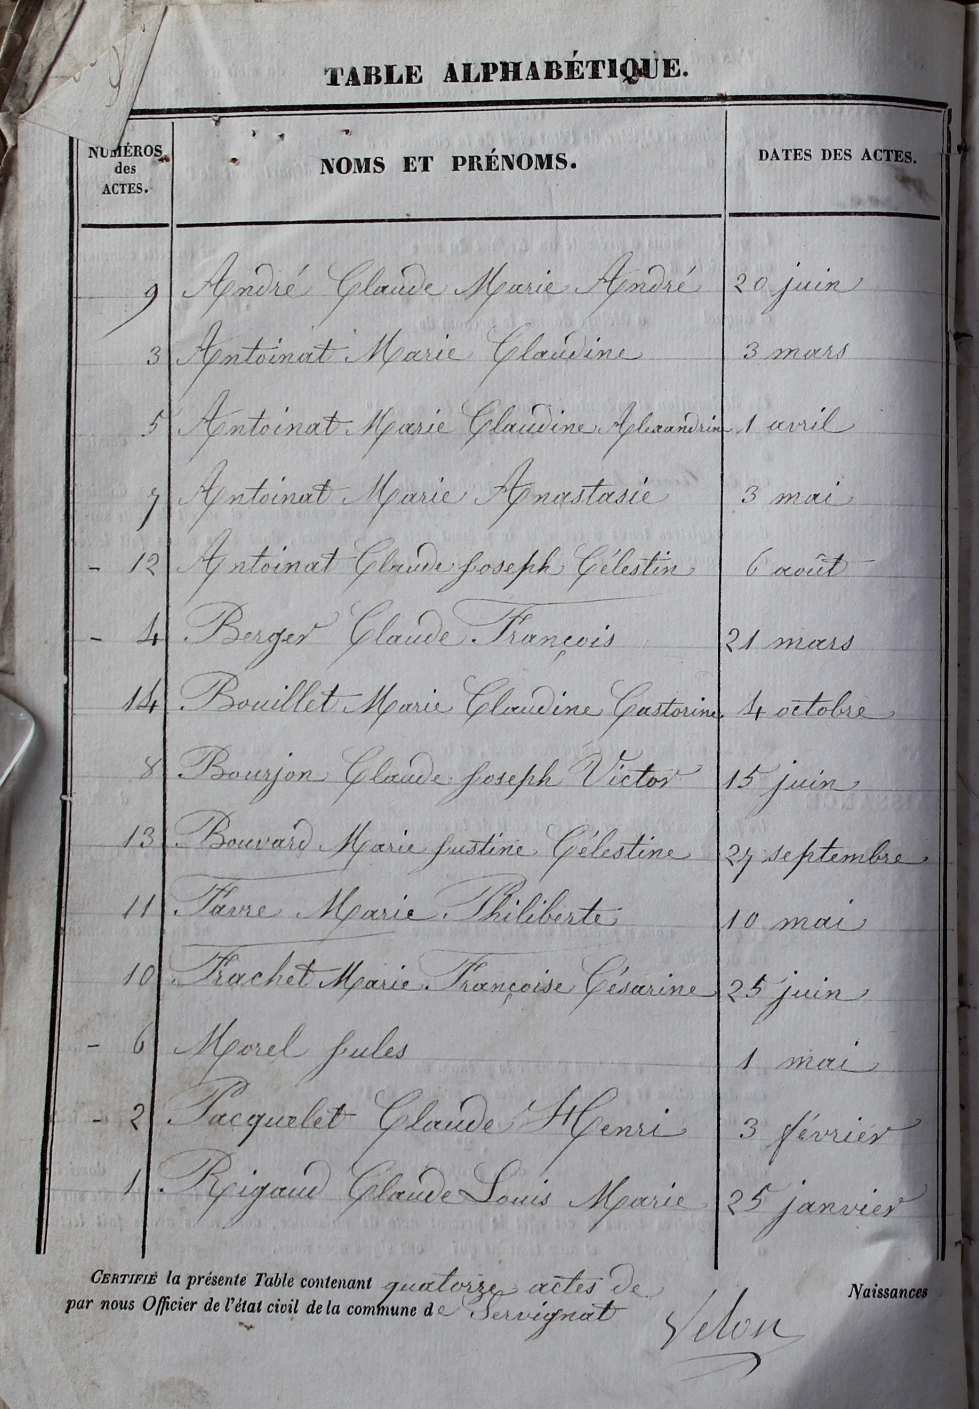 TABLE ALPHABÉTIQUE.
NUMÉROS des ACTES. NOMS ET PRÉNOMS. DATES DES ACTES.
9 André Claude Marie André 20 juin
3 Antoinat Marie Claudine 3 mars
5 Antoinat Marie Claudine Alexandrine 1 avril
7 Antoinat Marie Anastasie 3 mai
- 12 Antoinat Claude Joseph Célestin 6 août
- 4 Berger Claude François 21 mars
14 Bouillet Marie Claudine Castorine 4 octobre
8 Bourjon Claude Joseph Victor 15 juin
13 Bouvard Marie Justine Célestine 27 septembre
11 Favre Marie Philiberte 10 mai
10 Frachet Marie Françoise Césarine 25 juin
- 6 Morel Jules 1 mai
- 2 Pacquelet Claude Henri 3 février
1 Rigaud Claude Louis Marie 25 janvier
CERTIFIÉ la présente Table contenant quatorze actes de Naissances
par nous Officier de l'état civil de la commune de Servignat
Velon